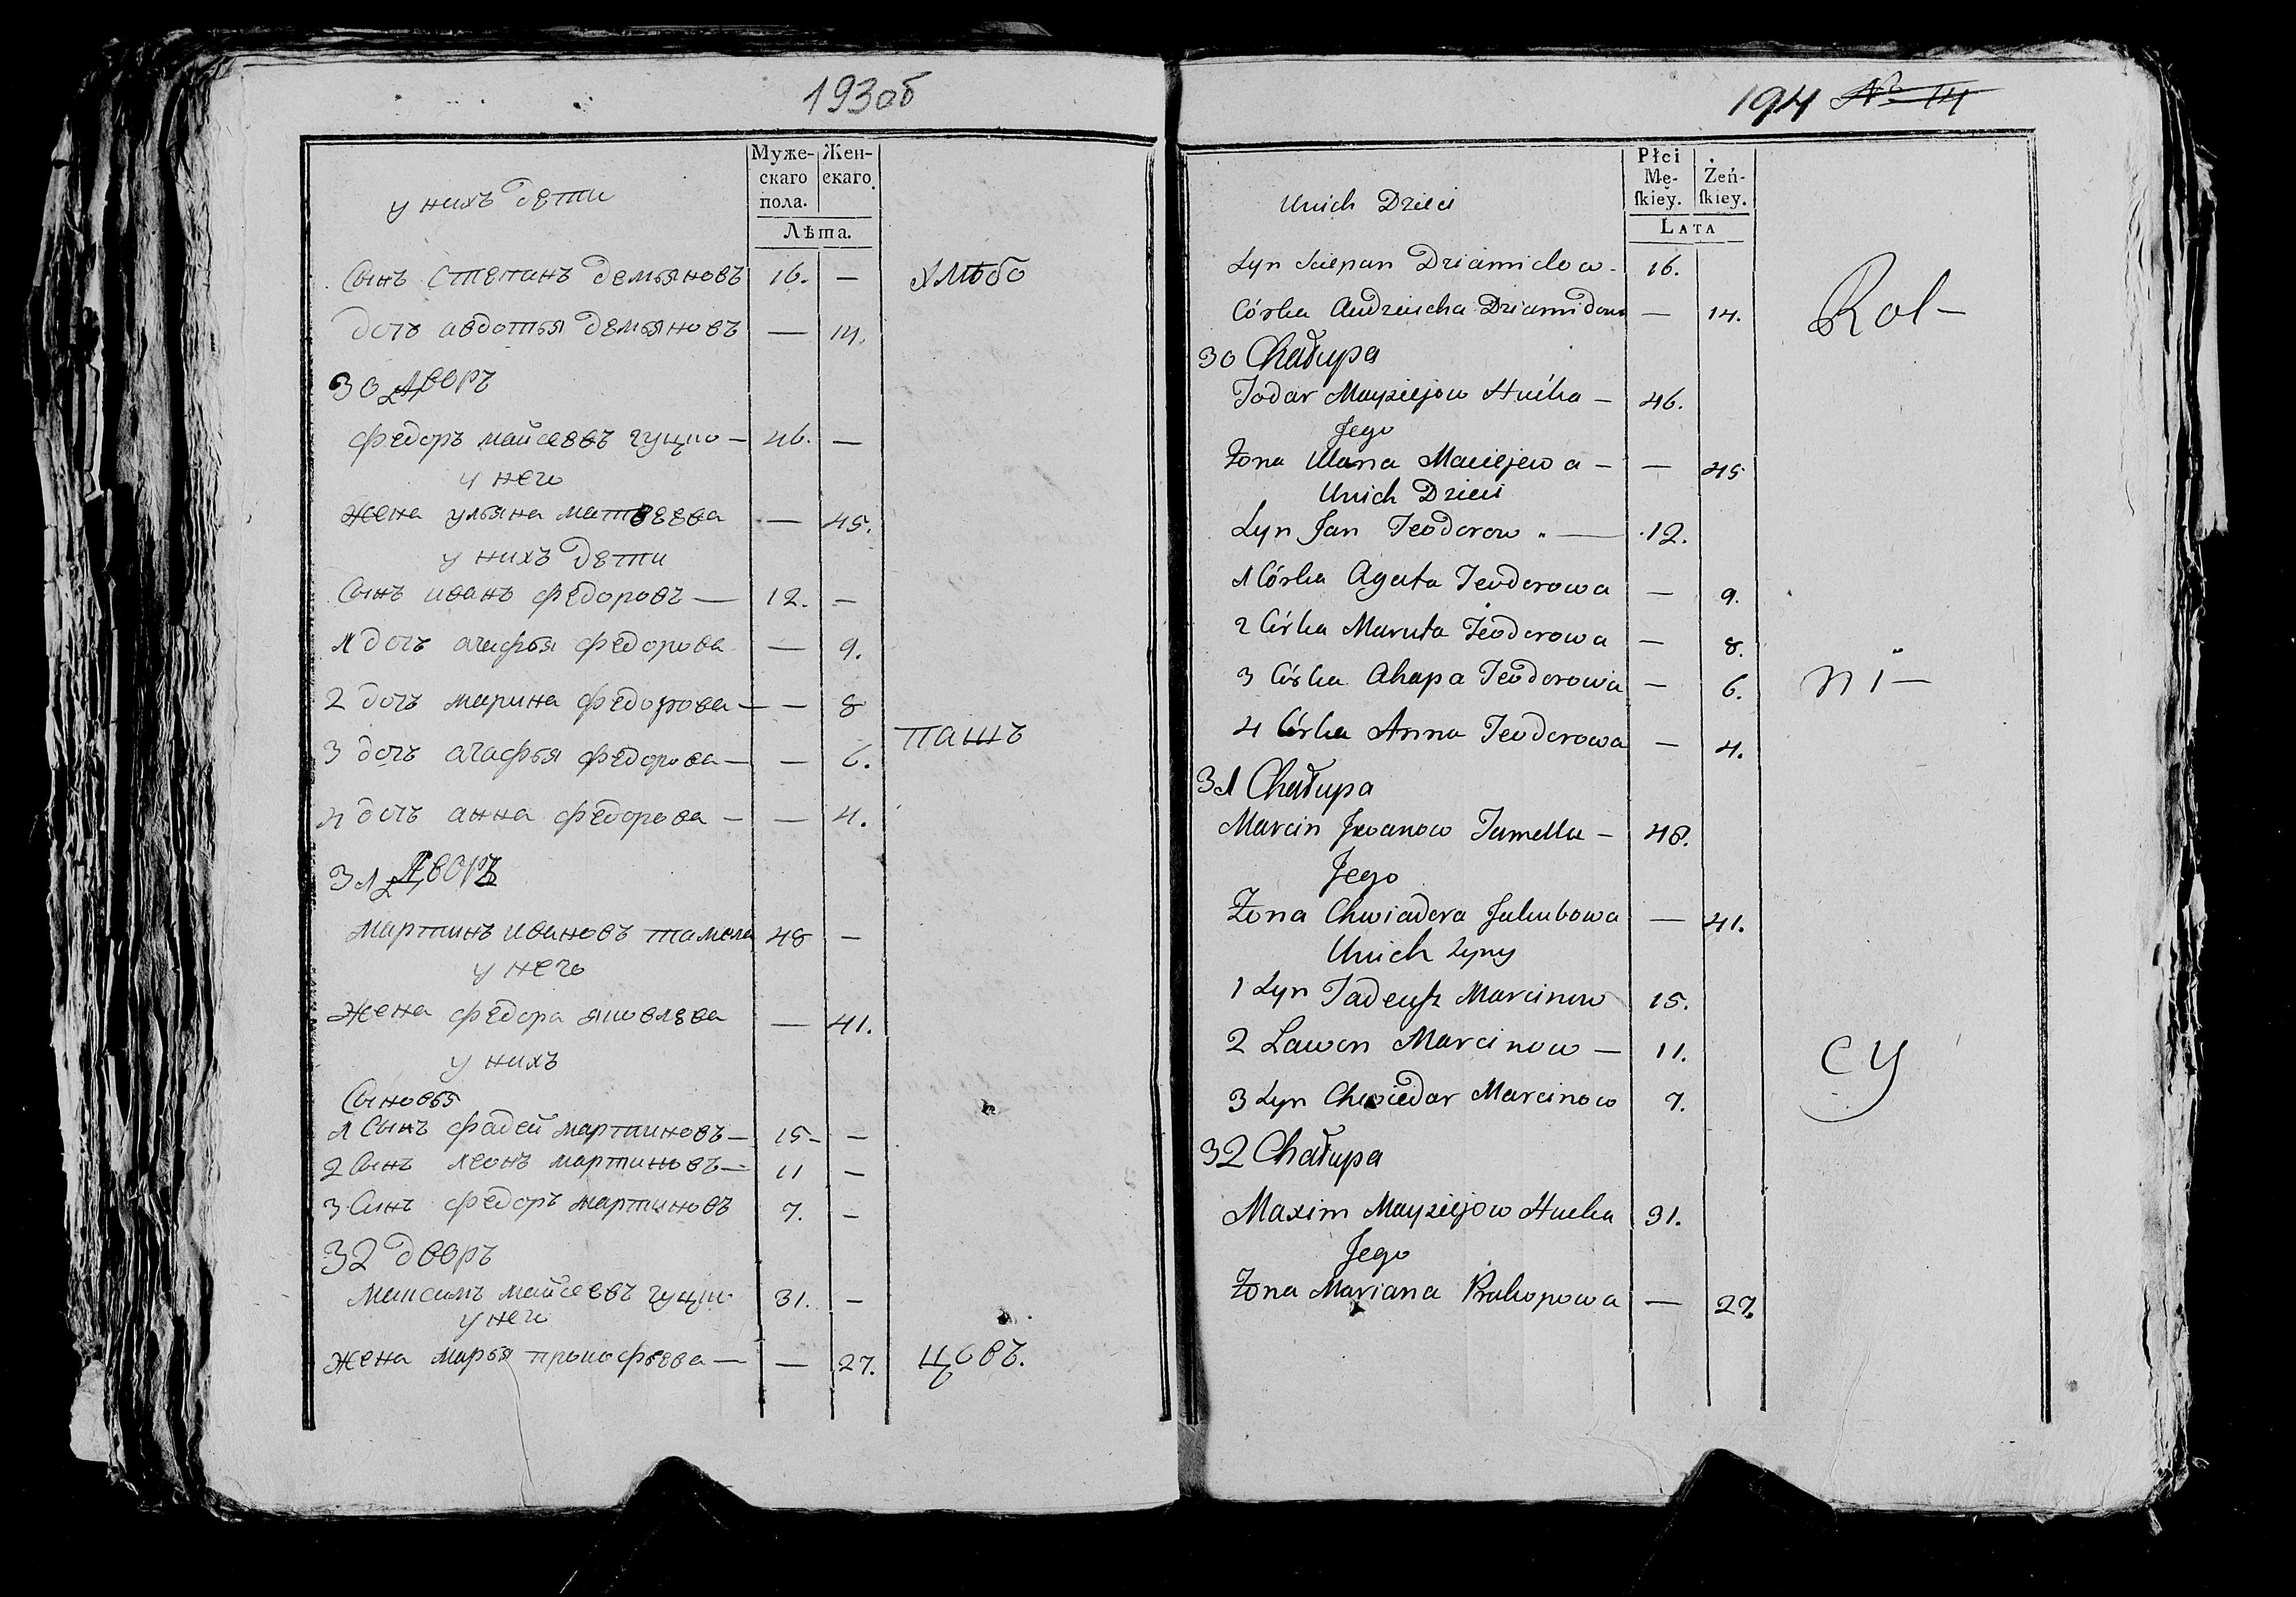 193об
Муже-
скаго
пола.
Жен-
скаго.
Лѣта.
у нихъ дети
Сынъ степанъ демьяновъ 16. —
хлѣбо
дочъ авдотья демьяновъ — 14.
30 дворъ
федоръ майсеевъ гуцко — 46. —
у него
жена ульяна матвеева — 45.
у нихъ дети
Сынъ иванъ федоровъ — 12. —
1 дочъ агафья федорова — 9.
2 дочъ марина федорова — — 8
пашъ
3 дочъ агафья федорова — — 6.
4 дочъ анна федорова — — 4.
31 дворъ
мартинъ ивановъ 48 —
у него
жена федора яковлева — 41.
у нихъ
Сыновья
1 Сынъ фадей мартиновъ — 15 —
2 Сынъ леонъ мартиновъ — 11 —
3 Сынъ федоръ мартиновъ 7. —
32 дворъ
максимъ майсеевъ гуцко 31. —
у него
жена марья прокофьева — — 27.
цовъ.
194 № 14
Płci
Mę-
ſkiey.
Żeń-
ſkiey.
LATA
Unich Dzieci
Syn Sciepan Dziamidow - 16.
Córka Audziucha Dziamidowa — 14.
Rol-
30 Chałupa
Todar Mayziejow Hucka — 46.
Jego
Żona Ulana Maciejewa — — 45
Unich Dzieci
Syn Jan Teodorow . — 12.
1 Córka Agata Teodorowa — 9.
2 Córka Maruta Teodorowa — 8.
3 Córka Ahapa Teodorowa — 6.
ni —
4 Córka Anna Teodorowa — 4.
31 Chałupa
Marcin Jwanow Tamella — 48.
Jego
Żona Chwiadora Jakubowa — 41.
Unich Syny
1 Syn Tadeuſz Marcinow 15.
2 Lawon Marcinow — 11.
cy
3 Syn Chwiedar Marcinow 7.
32 Chałupa
Maxim Mayziejow Hucka 31.
Jego
Żona Mariana Prokopowa — 27.